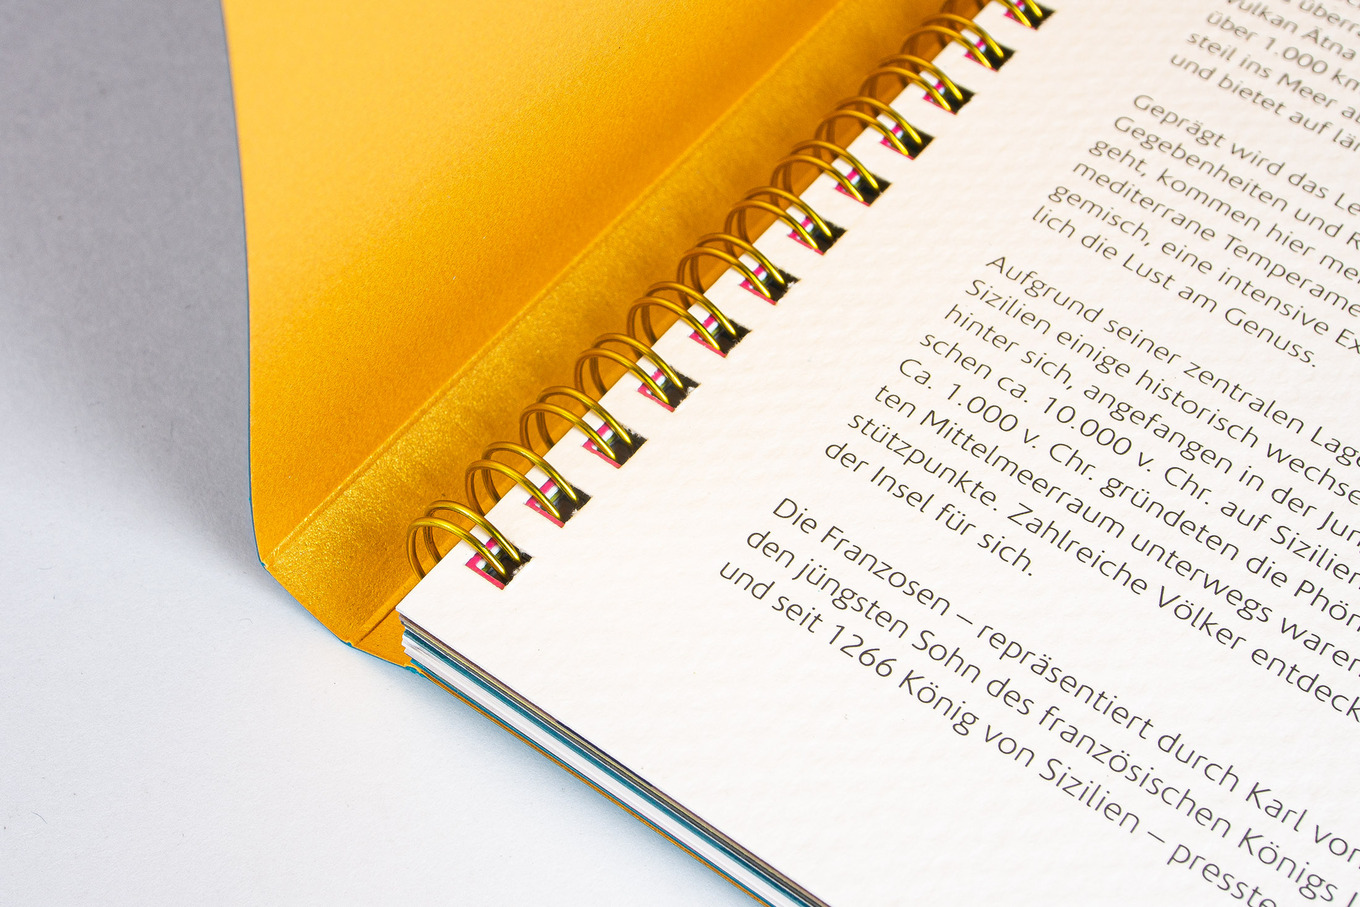 überr
Vulkan Ätna
über 1.000 km
steil ins Meer ab
und bietet auf lä
Geprägt wird das Le
Gegebenheiten und R
geht, kommen hier me
mediterrane Temperame
gemisch, eine intensive Ex
lich die Lust am Genuss.
Aufgrund seiner zentralen Lage
Sizilien einige historisch wechse
hinter sich, angefangen in der Jun
schen ca. 10.000 v. Chr. auf Sizilien
Ca. 1.000 v. Chr. gründeten die Phön
ten Mittelmeerraum unterwegs waren
stützpunkte. Zahlreiche Völker entdeck
der Insel für sich.
Die Franzosen – repräsentiert durch Karl von
den jüngsten Sohn des französischen Königs L
und seit 1266 König von Sizilien – presste